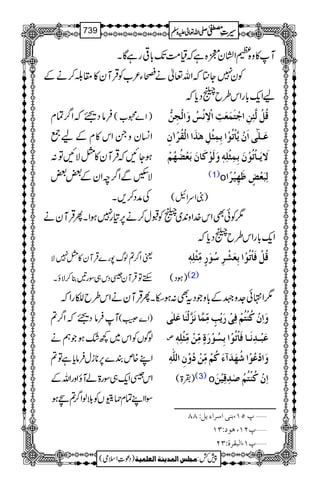 سیرتِ مصطفیٰ صلی اللہ تعالیٰ علیہ وسلم
739
آپ کا وہ عظیم الشان معجزہ ہے کہ قیامت تک باقی رہے گا۔
کون نہیں جانتا کہ اللہ تعالیٰ نے فصحائے عرب کو قرآن کا مقابلہ کرنے کے
لیے ایک بار اس طرح چیلنج دیا کہ
قُلْ لَّئِنِ اجْتَمَعَتِ الْاِنْسُ وَالْجِنُّ
عَلٰٓى اَنْ يَّاْتُوْا بِمِثْلِ هٰذَا الْقُرْاٰنِ
لَا يَاْتُوْنَ بِمِثْلِهٖ وَلَوْ كَانَ بَعْضُهُمْ
لِبَعْضٍ ظَهِيْرًا o (1)
(بنی اسرائیل)
(اے محبوب) فرما دیجئے کہ اگر تمام
انسان و جن اس کام کے لیے جمع
ہو جائیں کہ قرآن کا مثل لائیں تو نہ
لا سکیں گے اگرچہ ان کے بعض بعض
کی مدد کریں۔
مگر کوئی بھی اس خداوندی چیلنج کو قبول کرنے پر تیار نہیں ہوا۔ پھر قرآن نے
ایک بار اس طرح چیلنج دیا کہ
فَاْتُوْا بِعَشْرِ سُوَرٍ مِّثْلِهٖ
(2) (ہود)
یعنی اگر تم لوگ پورے قرآن کا مثل نہیں لا
سکتے تو قرآن جیسی دس ہی سورتیں بنا کر لاؤ۔
مگر انتہائی جدوجہد کے باوجود یہ بھی نہ ہو سکا۔ پھر قرآن نے اس طرح للکارا کہ
وَاِنْ كُنْتُمْ فِيْ رَيْبٍ مِّمَّا نَزَّلْنَا عَلٰى
عَبْدِنَا فَاْتُوْا بِسُوْرَةٍ مِّنْ مِّثْلِهٖ ص
وَادْعُوْا شُهَدَآءَكُمْ مِّنْ دُوْنِ اللّٰهِ
اِنْ كُنْتُمْ صٰدِقِيْنَ o (3) (بقرہ)
(اے حبیب) آپ فرما دیجئے کہ اگر تم
لوگوں کو اس میں کچھ شک ہو جو ہم نے
اپنے خاص بندے پر نازل فرمایا ہے تو تم
اس جیسی ایک ہی سورۃ لے آؤ اور اللہ کے
سوا اپنے تمام حمایتیوں کو بلا لو اگر تم سچے ہو
پ ۱۵، بنی اسراء یل: ۸۸
پ۱۲، ھود: ۱۳
پ۱، البقرۃ: ۲۳
پیش کش: مجلس المدینۃ العلمیۃ (دعوتِ اسلامی)